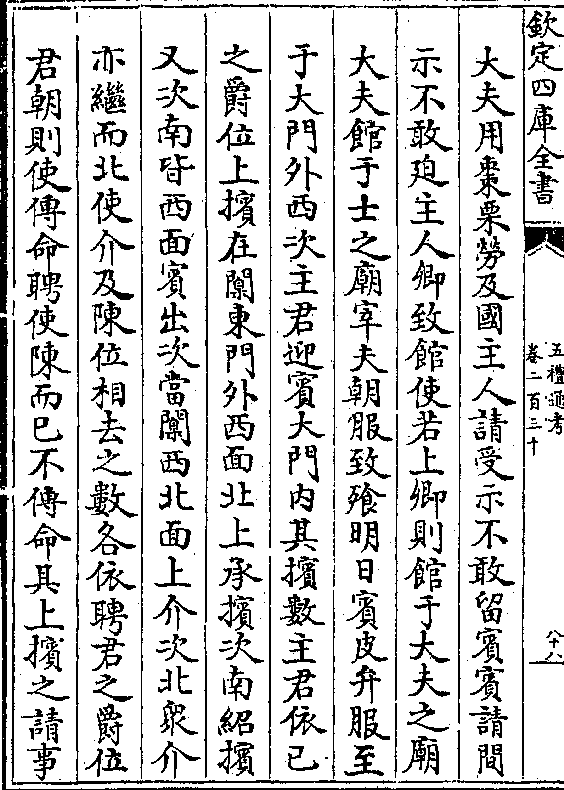 欽定四庫全書
五禮通考
卷二百三十
六十八
大夫用棗栗勞及國主人請受示不敢留賓賓請間
示不敢廹主人卿致館使若上卿則館于大夫之廟
大夫館于士之廟宰夫朝服致飱明日賓皮弁服至
于大門外西次主君迎賓大門内其擯數主君依已
之爵位上擯在闑東門外西面北上承擯次南紹擯
又次南皆西面賓出次當闑西北面上介次北衆介
亦繼而北使介及陳位相去之數各依聘君之爵位
君朝則使傳命聘使陳而已不傳命其上擯之請事